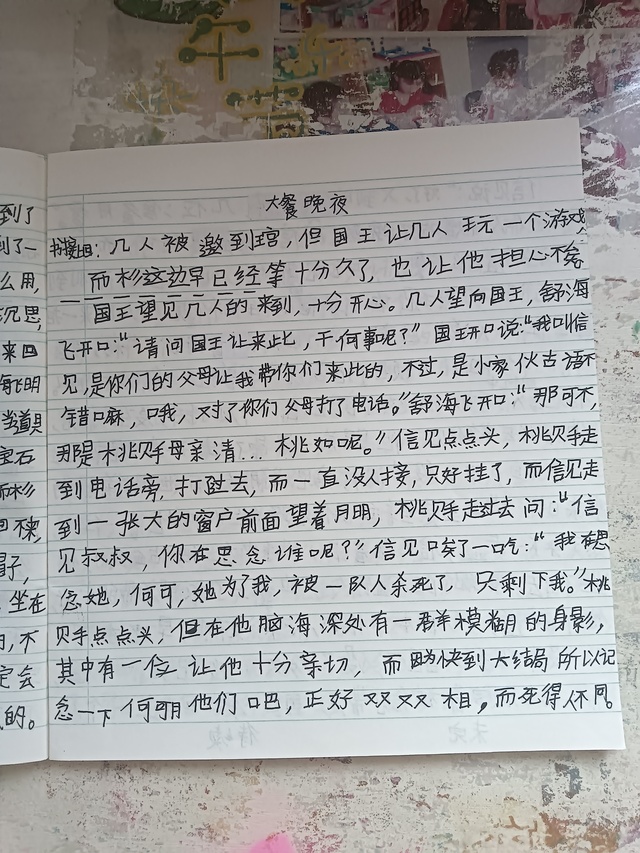 大餐晚夜
书接上回：几人被邀到王宫，但国王让几人玩一个游戏，
而杉这边早已经等十分久了，也让他担心不舍
国王望见几人的来到，十分开心。几人望向国王，舒海
飞开口：“请问国王让来此，干何事呢？”国王开口说：“我叫信
见，是你们的父母让我带你们来此的，不过，是小家伙古语不
错口麻，口我，对了你们父母打了电话。”舒海飞开口：“那可不，
那是桃贝手母亲清…桃如呢。”信见点点头，桃贝手走
到电话旁，打过去，而一直没人接，只好挂了，而信见走
到一张大的窗户前面望着月明，桃贝手走过去问：“信
见叔叔，你在思念谁呢？”信见口矣了一口气：“我在思
念她，何可，她为了我，被一队人杀死了，只剩下我。”桃
贝手点点头，但在他脑海深处有一群模糊的身影，
其中有一位让他十分亲切，而因为快到大结局所以记
念一下何明他们吧，正好双双又相，而死得不同。
到了
到了一
么用，
沉思，
来回
海飞明
当道具
宝石
而杉
回来，
帽子，
坐在
，不
定会
的。